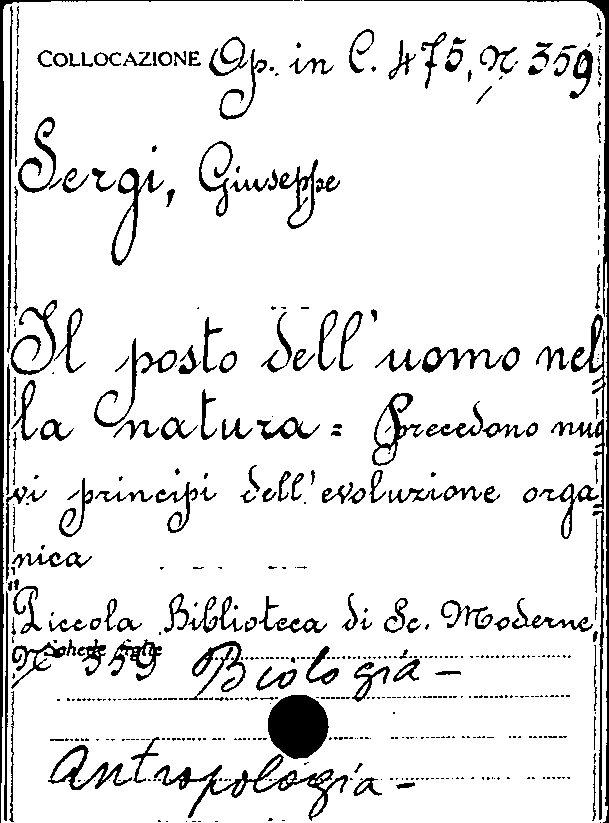 COLLOCAZIONE Op. in C. 475, N 359
Sergi, Giuseppe
Il posto dell'uomo nel
la natura = Precedono nuo
vi principi dell'evoluzione orga
nica
"Piccola Biblioteca di Sc. Moderne
N 359 Schede figlie Biologia -
Antropologia -